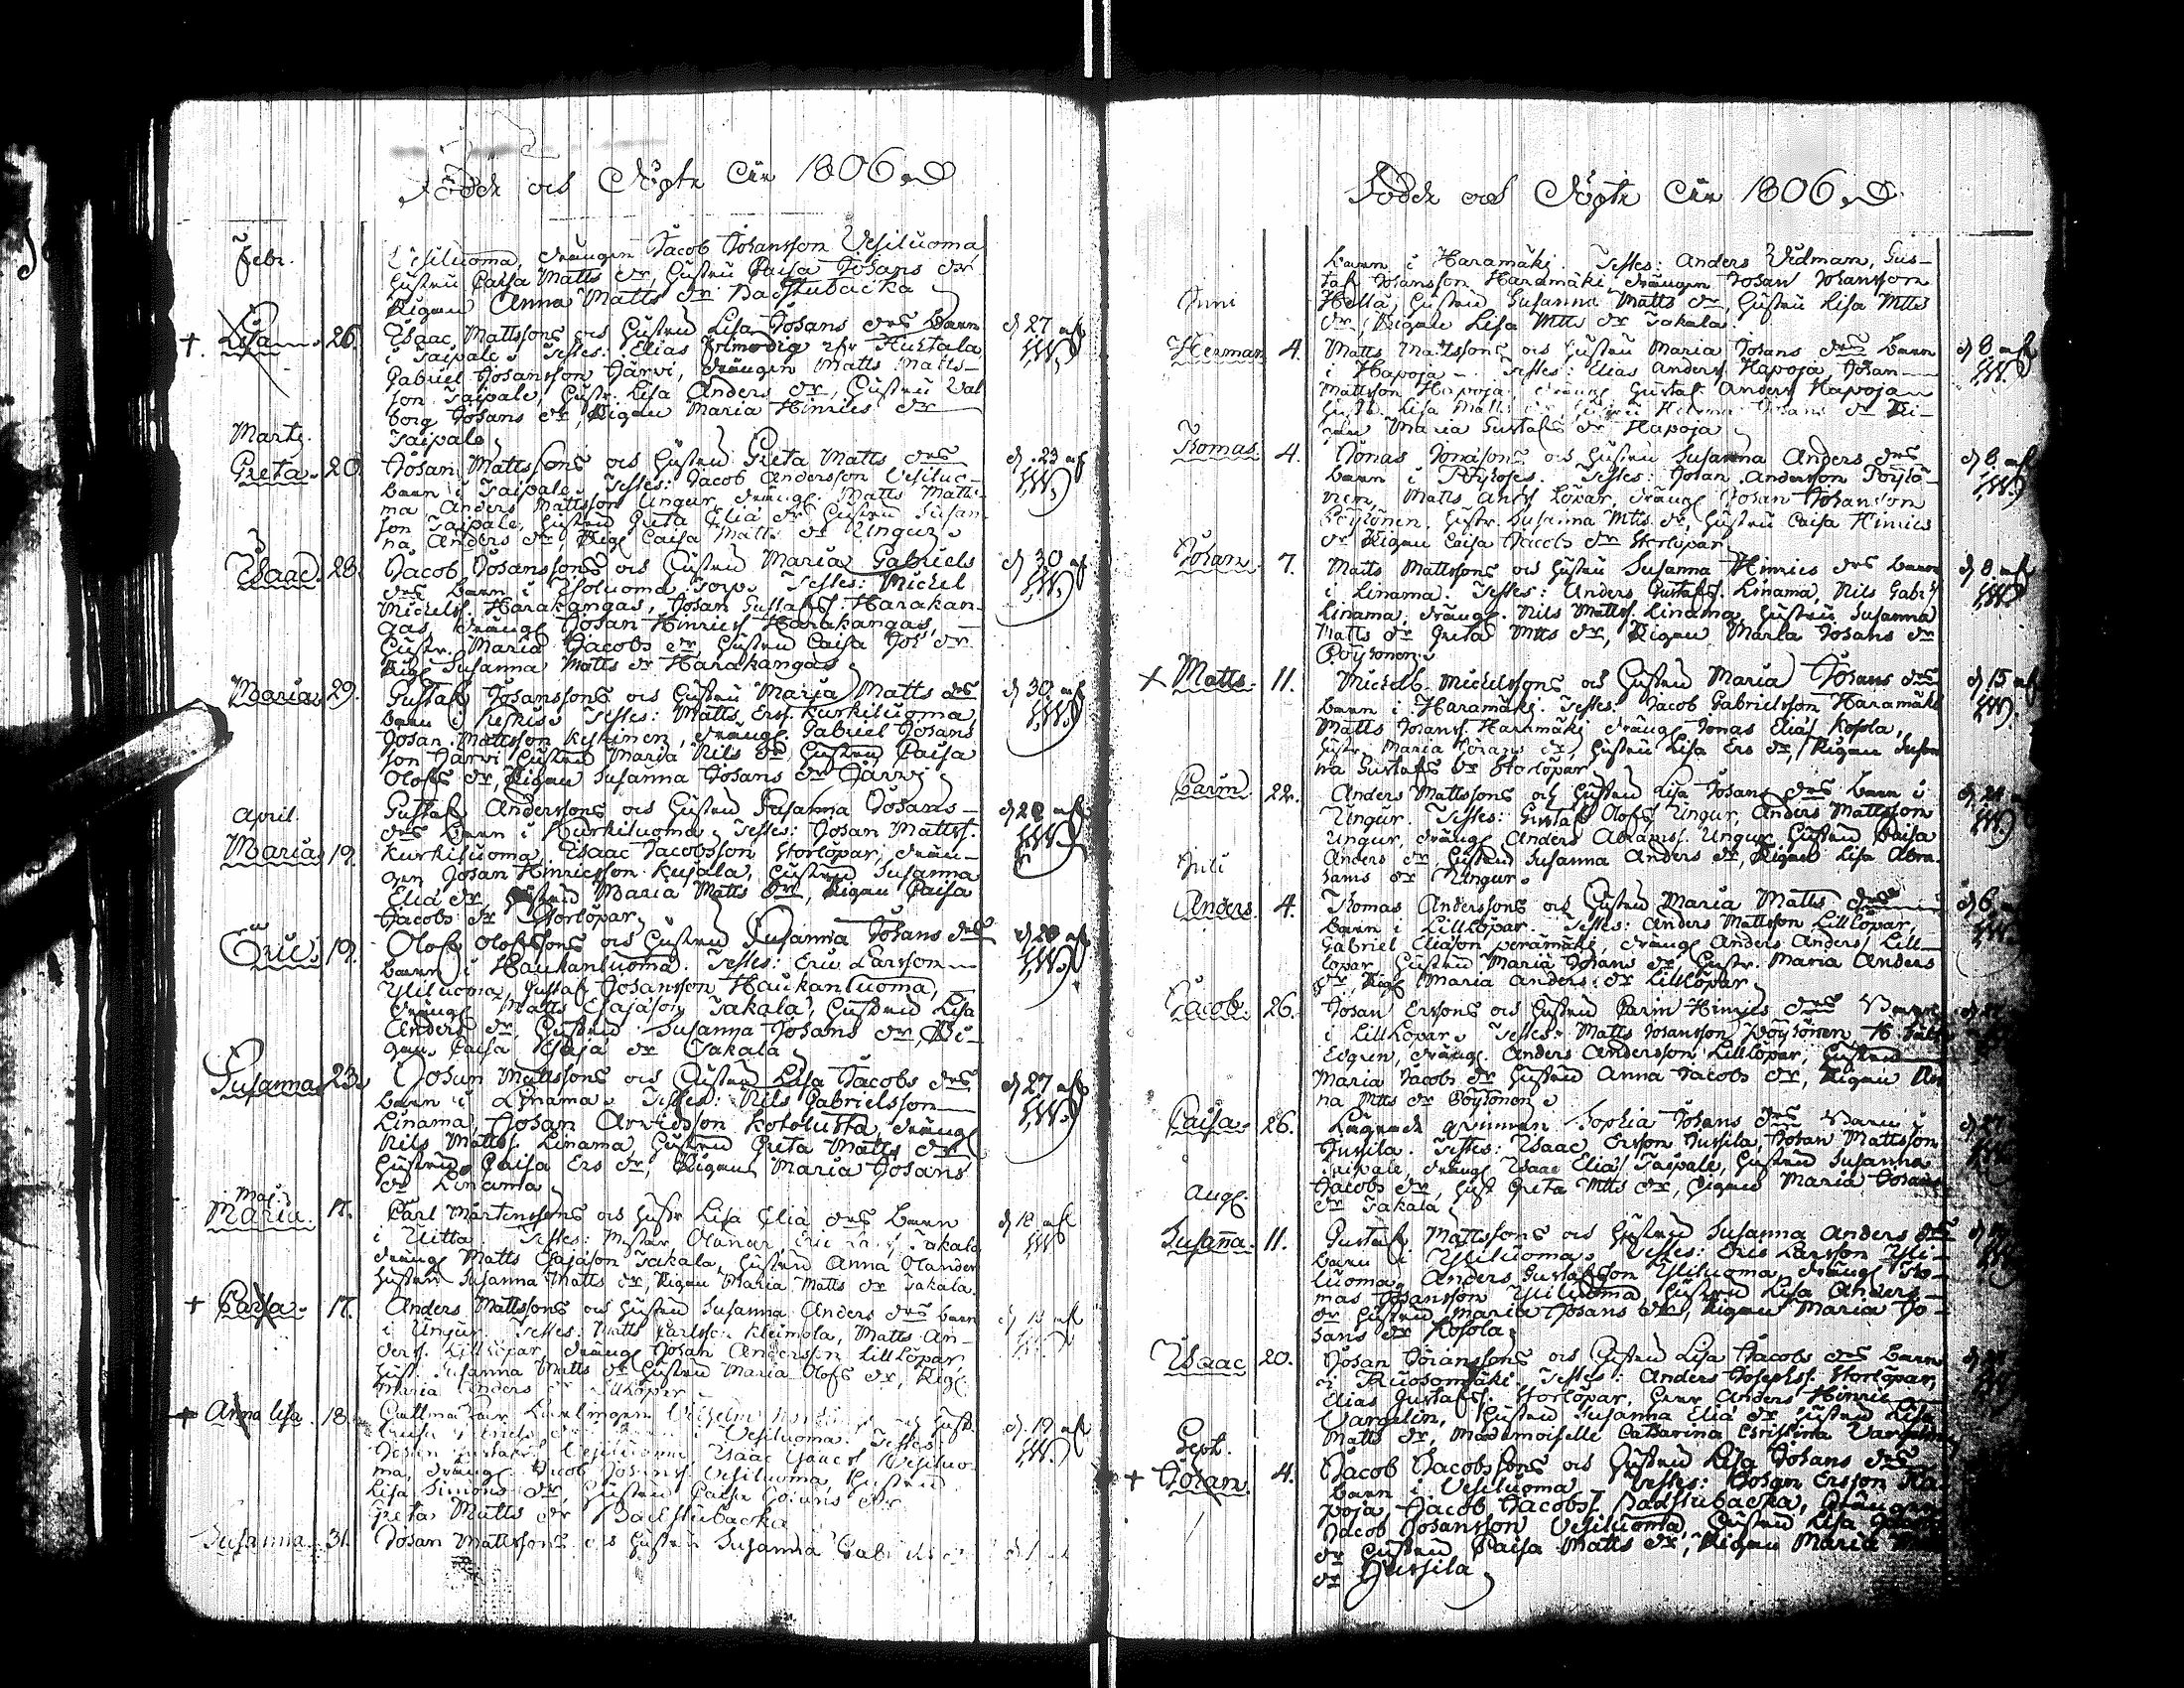 Födde och Döpte År 1806
Febr.
Vesiluoma, drängen Jacob Johansson Vesiluoma
hustru Caisa Matts dr, hustru Caisa Johans dr
Pigan Anna Matts dr Backstubacka
+ Lisa 26. Isaac Mattssons och hustru Lisa Johans drs barn d 27
i Taipale. Testes: Elias Frimodig Hurtala
Gabriel Johansson Järvi, drängen Matts Matts-
son Taipale, hustr. Lisa Anders dr, hustru Val
borg Johans dr, Pigan Maria Hinrics dr
Taipale
Marts.
Greta 20. Johan Mattssons och hustru Greta Matts drs d. 23
barn i Taipale. Testes: Jacob Andersson Vesiluo-
ma Anders Mattsson Ungur, drängen Matts Matts-
son Taipale, hustru Greta Eliæ dr hustru Susan-
na Anders dr, Pig. Caisa Matts dr Ungur
Isaac 28. Jacob Johanssons och hustru Maria Gabriels d 30
drs barn i Isoluoma torp. Testes: Michel
Michelss. Harakangas, Johan Gustafss. Harakan-
gas, dräng. Johan Hinricss Harakangas,
hustr. Maria Jacobs dr, hustru Caisa Joh dr
Pig. Susanna Matts dr Harakangas
Maria 29. Gustaf Johanssons och hustru Maria Matts drs d 30
barn i Keskis. Testes: Matts Erss. Kurkiluoma,
Johan Mattsson Keskinen, dräng. Gabriel Johans
son Järvi hustru Maria Nils dr, hustru Caisa
Olofs dr, Pigan Susanna Johans dr Järvi
April.
Maria 19. Gustaf Anderssons och hustru Susanna Johans- d 20
drs barn i Kurkiluoma. Testes: Johan Mattss.
Kurkiluoma, Isaac Jacobsson Storlöpar, drän-
gen Johan Hinricsson Kujala, hustru Susanna
Eliæ dr, hustru Maria Matts dr, Pigan Caisa
Jacobs dr Storlöpar
Eric 19. Olof Olofssons och hustru Susanna Johans drs d 20
barn i Haukanluoma. Testes: Eric Larsson
Yliluoma, Gustaf Johansson Haukanluoma,
dräng. Matts Esajason Takala, hustru Lisa
Anders dr, hustru Susanna Johans dr, Pi-
gan Caisa Esajæ dr Takala
Susanna 23. Johan Mattssons och hustru Lisa Jacobs drs d 27
barn i Linama. Testes: Nils Gabrielsson
Linama, Johan Arvidsson Kotoluska, dräng.
Nils Mattss. Linama, hustru Greta Matts dr
hustru Caisa Ers dr, Pigan Maria Johans
dr Linama
Maj.
Maria 17. Carl Mårtenssons och hustr Lisa Eliæ drs barn d 18
i Uitta. Testes: Mister Olander Eric Takala
dräng. Matts Esajason Takala, hustru Anna Olander
hustru Susanna Matts dr, Pigan Maria Matts dr Takala
+ Caisa 17. Anders Mattssons och hustru Susanna Anders drs barn
i Ungur. Testes: Matts Carlsson Kleimola, Matts An-
derss. Lillköpar, dräng. Johan Andersson Lilllöpar
hust. Susanna Matts dr hustru Maria Olofs dr, Pig.
Maria Anders dr Lilllöpar
+ Anna Lisa 18. d. 19
i Vesiluoma. Testes:
Johan Gustafss. Vesiluoma Isaac Isaacss Vesiluo-
ma, dräng. Jacob Johanss. Vesiluoma, hustru
Lisa Simons dr, hustru Caisa Johans dr
Greta Matts dr Backstubacka
Susanna 31. Johan Mattssons och hustru Susanna Gabriels
Födde och Döpte År 1806
barn i Haramäki. Testes: Anders Widman, Gus-
taf Johansson Haramäki, drängen Johan Johansson
Juni
Hella, hustru Susanna Matts dr, hustru Lisa Mtts
dr, Pigan Lisa Mtts dr Takala.
Herman 4. Matts Mattssons och hustru Maria Johans drs barn d 8
i Hapoja. Testes: Elias Anderss. Hapoja, Johan
Mattsson Hapoja, dräng. Gustaf Anderss Hapoja
hustr. Lisa Matts dr, hustru Helena Johans dr Pi-
gan Maria Gustafs dr Hapoja
Thomas 4. Jonas Jonæsons och hustru Susanna Anders drs d 8
barn i Pöyhös. Testes: Johan Andersson Pöyhö-
nen, Matts Anss Löpar, dräng. Johan Johansson
Pöyhönen, hustr. Susanna Mtts. dr, hustru Caisa Hinrics
dr Pigan Caisa Jacobs dr Storlöpar
Johan 7. Matts Mattssons och hustru Susanna Hinrics drs barn d 8
i Linama. Testes: Anders Gustafss. Linama, Nils Gabr.
Linama, dräng. Nils Mattss. Linama, hustru Susanna
Matts dr Greta Mtts dr, Pigan Maria Johans dr
Pöyhönen
+ Matts 11. Michels Michelssons och hustru Maria Johans drs d 15
barn i Haramäki. Testes: Jacob Gabrielsson Haramäki
Matts Johanss. Haramäki dräng. Jonas Eliæ Kosola,
hustr. Maria Johans dr, hustru Lisa Ers dr, Pigan Susan
na Gustafs dr Storlöpar
Carin 22. Anders Mattssons och hustru Lisa Johans drs barn i d. 24
Ungur. Testes: Gustaf Olofs. Ungur, Anders Mattsson
Ungur, dräng. Anders Abramss. Ungur, hustru Caisa
Juli
Anders dr, hustru Susanna Anders dr, Pigan Lisa Abra-
hams dr Ungur.
Anders 4. Thomas Anderssons och hustru Maria Matts drs d 6
barn i Lilllöpar. Testes: Anders Mattsson Lilllöpar,
Gabriel Eliason Perämäki, dräng. Anders Anderss Lill-
löpar, hustru Maria Johans dr, hustr. Maria Anders
dr, Pig. Maria Anders dr Lilllöpar
Jacob 26. Johan Erssons och hustru Carin Hinrics drs barn
i Lilllöpar. Testes: Matts Johansson Pöyhönen,
Evgren, dräng. Anders Andersson Lilllöpar, hustru
Maria Jacobs dr hustru Anna Jacobs dr, Pigan An
na Mtts dr Pöyhönen
Caisa 26. Lägrade qvinnan Sophia Johans drs barn i d. 27
Jussila. Testes: Isaac Ersson Jussila, Johan Mattsson
Taipale, dräng. Isaac Eliæ Taipale, hustru Susanna
Aug.
Jacobs dr, hust Greta Mtts dr, Pigan Maria Johans
dr Takala
Susanna 11. Gustaf Mattssons och hustru Susanna Anders drs
barn i Yliluoma. Testes: Eric Larsson Yli-
luoma, Anders Gustafsson Yliluoma, dräng. Tho-
mas Johansson Yliluoma, hustru Lisa Anders
dr hustru Maria Johans dr, Pigan Maria Jo-
hans dr Kosola
Isaac 20. Johan Johanssons och hustru Lisa Jacobs drs barn
i Ruosomäki. Testes: Anders Josephss. Storlöpar,
Elias Gustafss. Storlöpar, Herr Anders Hinric
Vargelin, hustru Susanna Eliæ dr hustru Lisa
Matts dr, Mademoiselle Catharina Christina Vargelin
Sept.
+ Johan 4. Jacob Jacobssons och hustru Lisa Johans drs
barn i Vesiluoma. Testes: Johan Ersson Ha-
poja Jacob Jacobss. Badstubacka, drängen
Jacob Johansson Vesiluoma, hustru Lisa
dr hustru Caisa Matts dr, Pigan Maria
dr Jussila